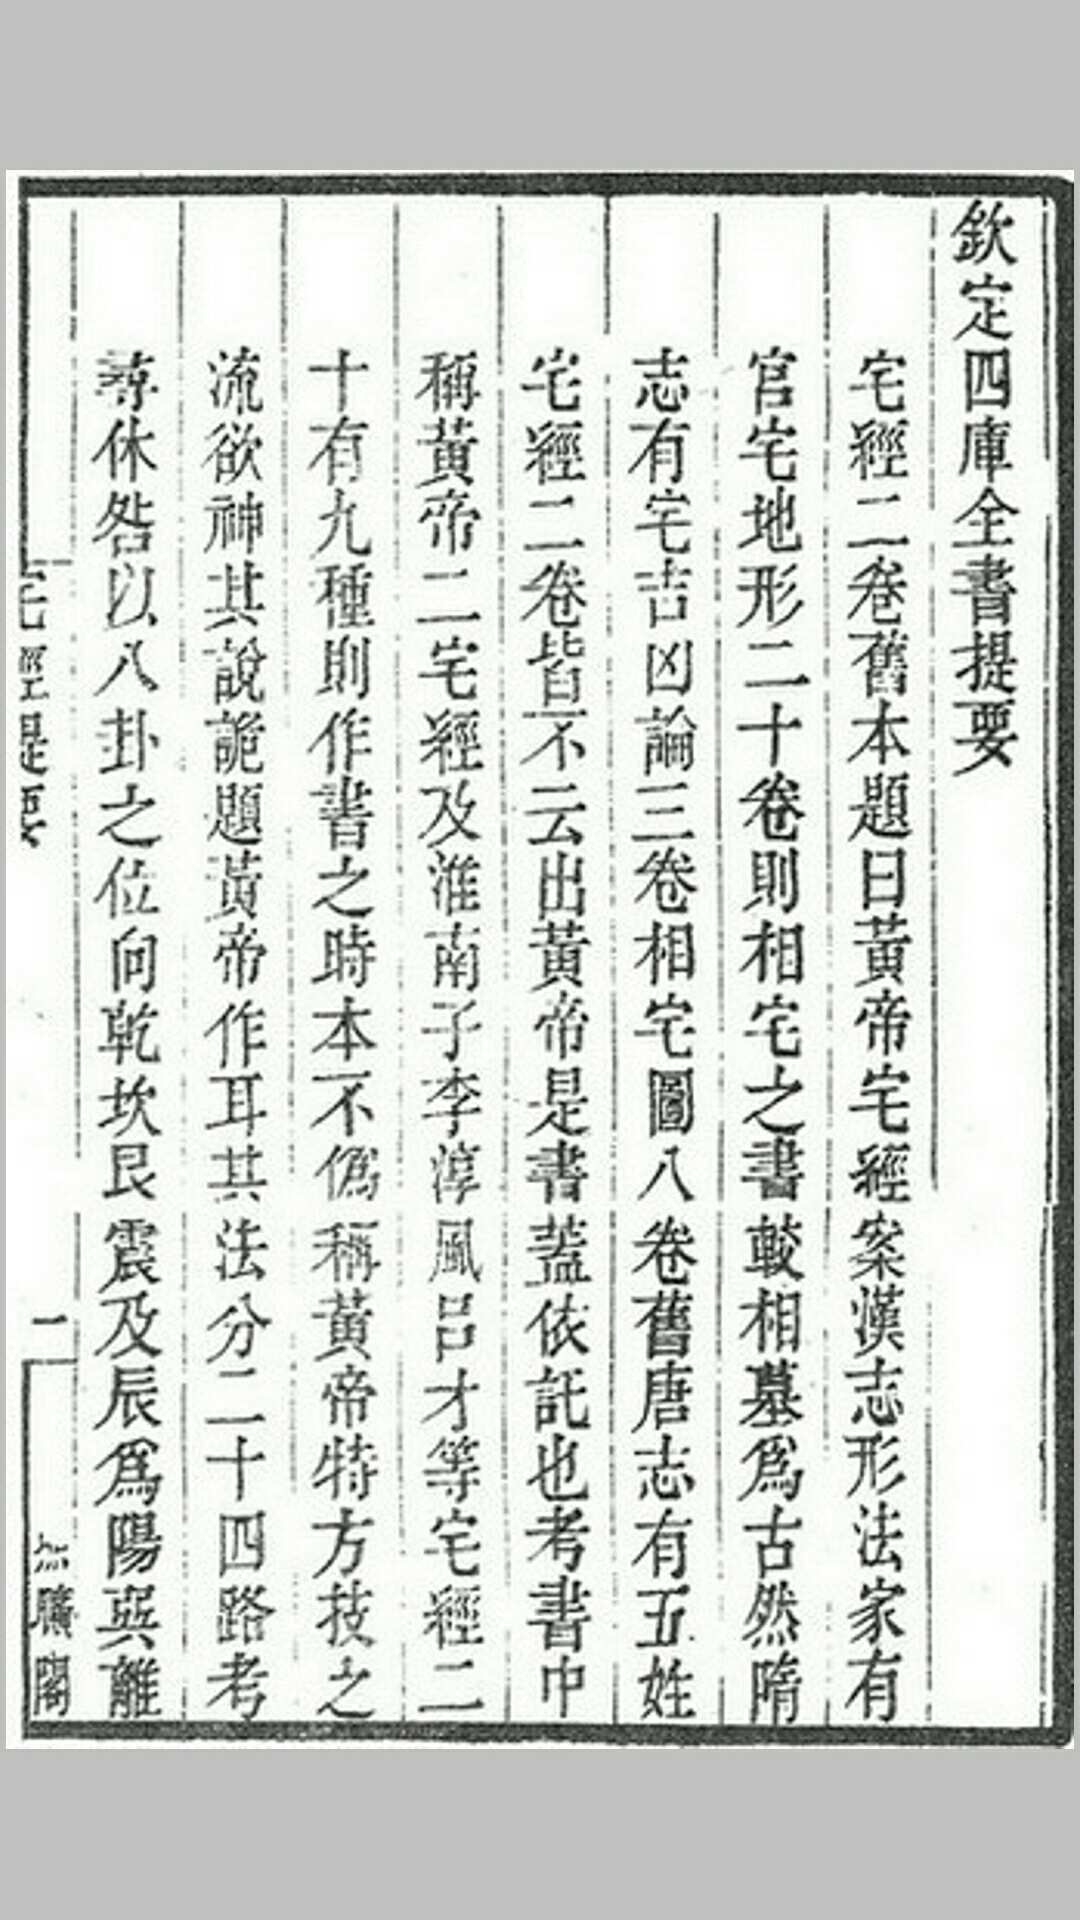 欽定四庫全書提要
宅經二卷舊本題曰黃帝宅經案漢志形法家有
官宅地形二十卷則相宅之書較相墓爲古然隋
志有宅吉凶論三卷相宅圖八卷舊唐志有五姓
宅經二卷皆不云出黃帝是書蓋依託也考書中
稱黃帝二宅經及淮南子李淳風呂才等宅經二
十有九種則作書之時本不僞稱黃帝特方技之
流欲神其說詭題黃帝作耳其法分二十四路考
尋休咎以八卦之位向乾坎艮震及辰爲陽巽離
宅經提要
一
照曠閣